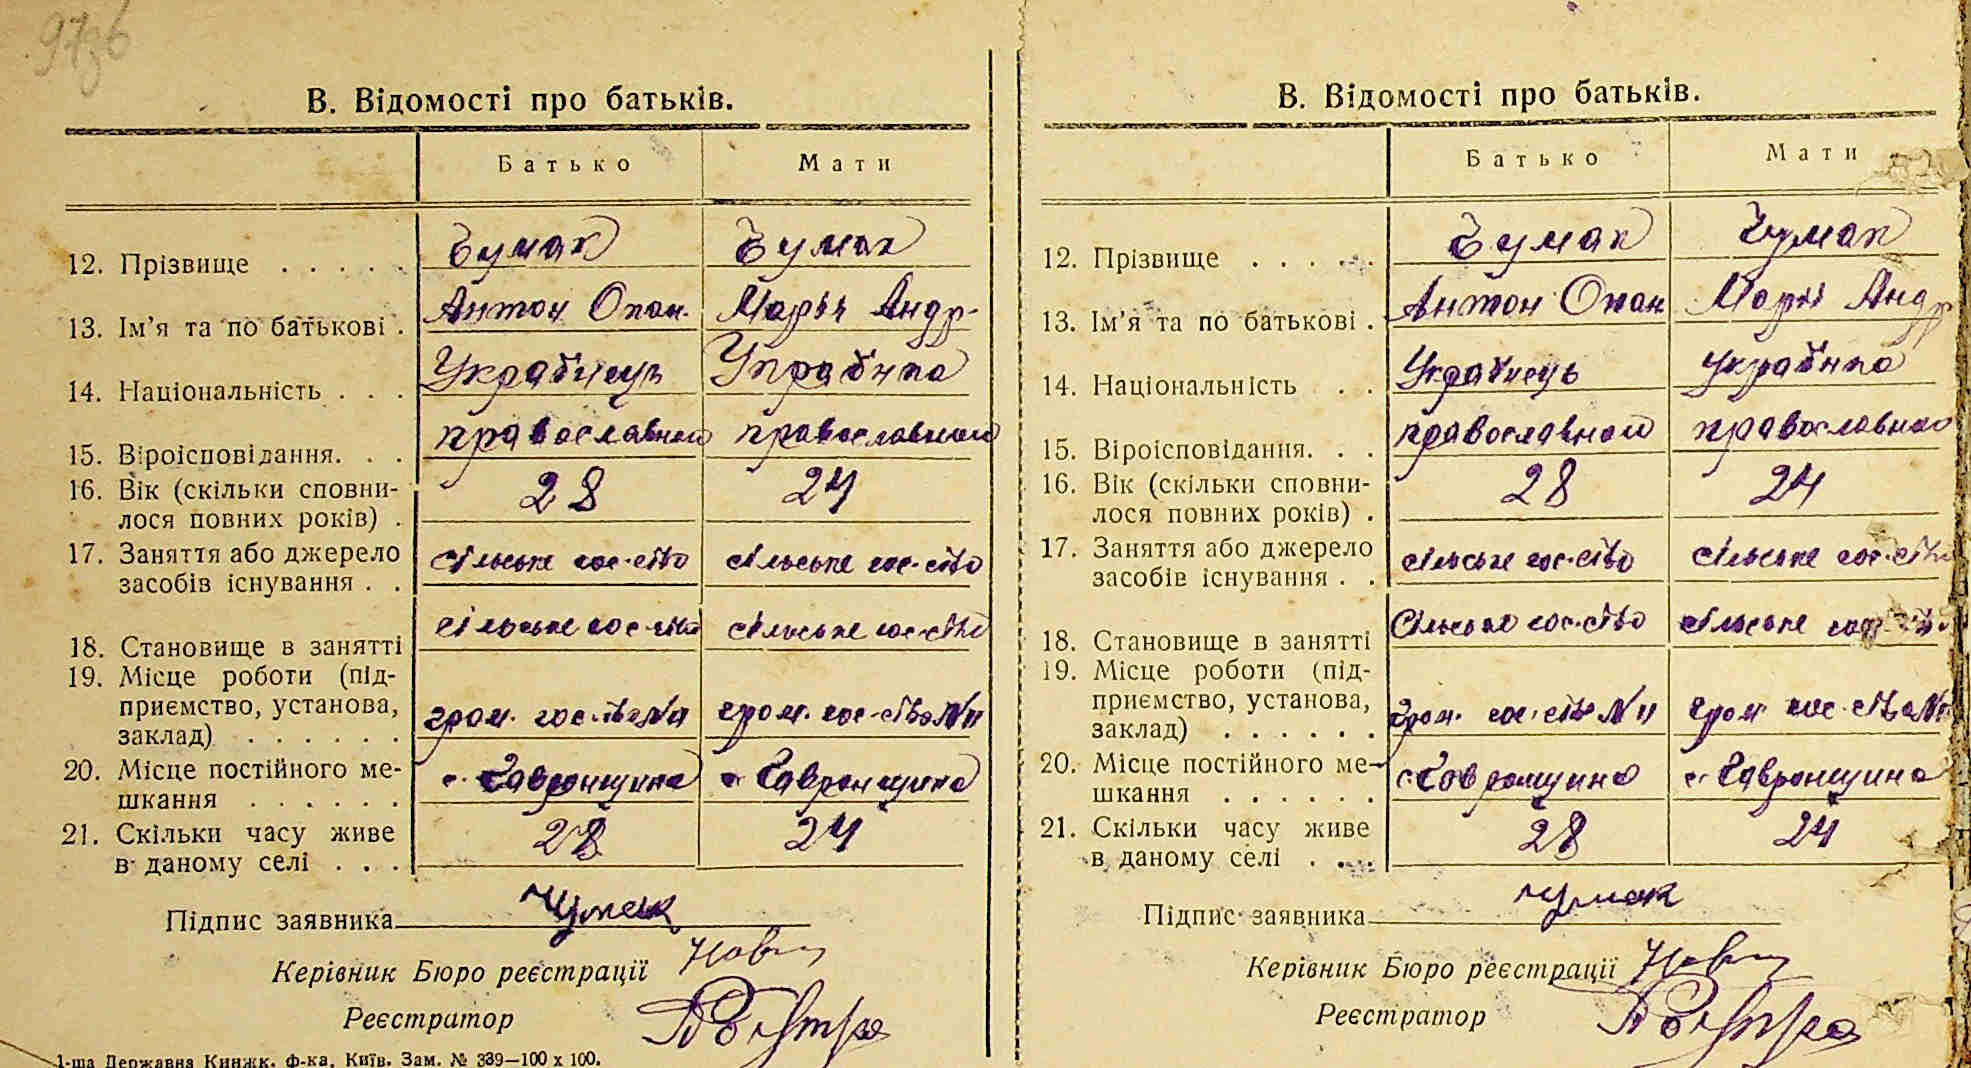 97зб
В. Відомості про батьків.
Батько Мати
12. Прізвище . . . . . Чумак Чумак
13. Ім’я та по батькові . Антон Опан. Марія Андр.
14. Національність . . . Українець Українка
15. Віроісповідання. . . православного православного
16. Вік (скільки сповни-
лося повних років) . 28 24
17. Заняття або джерело
засобів існування . . сільське гос-ство сільське гос-ство
18. Становище в занятті сільське гос-ство сільське гос-ство
19. Місце роботи (під-
приємство, установа,
заклад) . . . . . . гром. гос-тво №11 гром. гос-ство №11
20. Місце постійного ме-
шкання . . . . . . с. Гавронщина с. Гавронщина
21. Скільки часу живе
в даному селі . . . 28 24
Підпис заявника Чумак
Керівник Бюро реєстрації
Реєстратор
1-ша Державна Книжк. ф-ка, Київ. Зам. № 339—100 х 100.
В. Відомості про батьків.
Батько Мати
12. Прізвище . . . . . Чумак Чумак
13. Ім’я та по батькові . Антон Опан. Марія Андр.
14. Національність . . Українець українка
15. Віроісповідання. . . православного православного
16. Вік (скільки сповни-
лося повних років) . 28 24
17. Заняття або джерело
засобів існування . . сільське гос-ство сільське гос-ство
18. Становище в занятті Сільське гос-ство сільське
19. Місце роботи (під-
приємство, установа,
заклад) . . . . . . гром. гос-ство №11 гром. гос-ство №11
20. Місце постійного ме-
шкання . . . . . . с. Гавронщина с. Гавронщина
21. Скільки часу живе
в даному селі . . . 28 24
Підпис заявника Чумак
Керівник Бюро реєстрації
Реєстратор